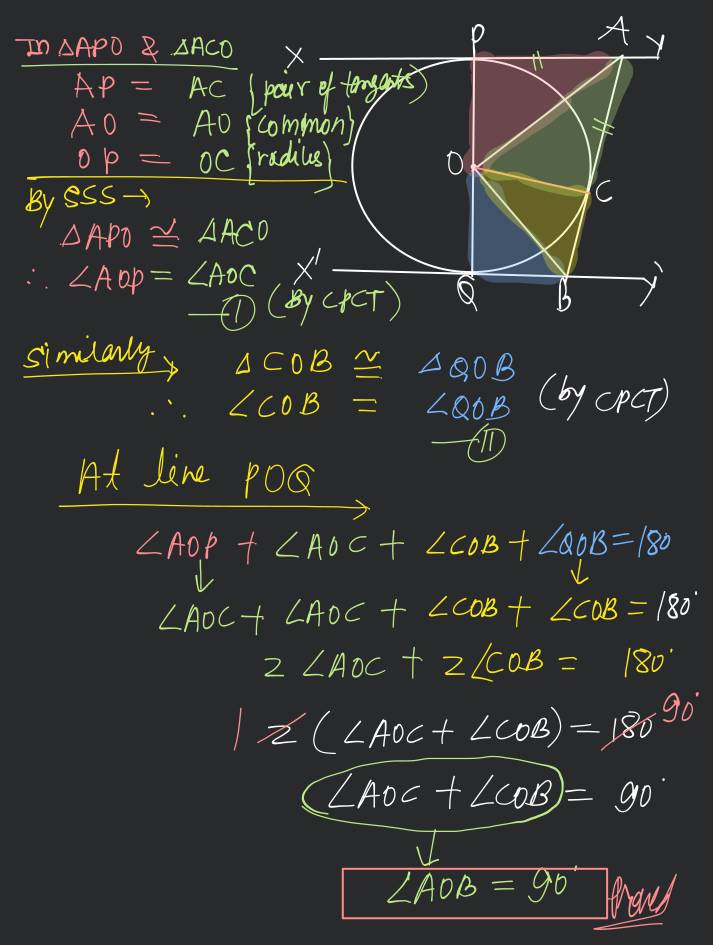 In △APO & △ACO
AP = AC {pair of tangents}
AO = AO {common}
OP = OC {radius}
By SSS →
△APO ≅ △ACO
∴ ∠AOP = ∠AOC
—Ⓘ (By CPCT)
X P A Y
O C
X' Q B Y'
Similarly →
△COB ≅ △QOB
∴ ∠COB = ∠QOB (by CPCT)
—(II)
At line POQ
∠AOP + ∠AOC + ∠COB + ∠QOB = 180
∠AOC + ∠AOC + ∠COB + ∠COB = 180°
2 ∠AOC + 2∠COB = 180°
1 2 (∠AOC + ∠COB) = 180 90°
∠AOC + ∠COB = 90°
∠AOB = 90° Proved